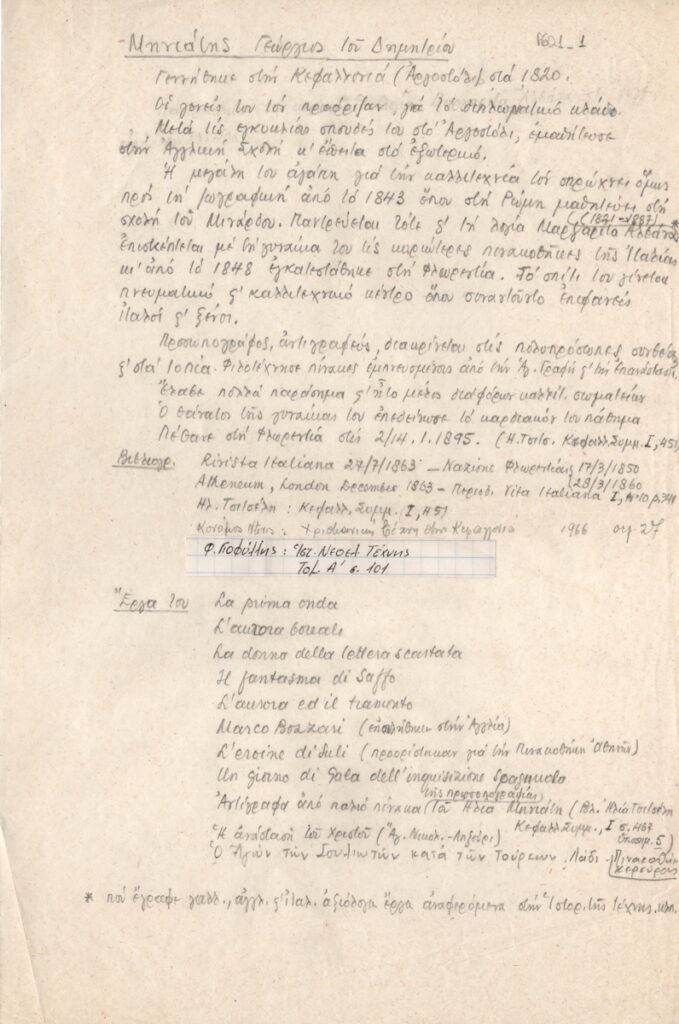 Μηνιάτης Γεώργιος τοῦ Δημητρίου
Γεννήθηκε στήν Κεφαλλονιά (Ἀργοστόλι) στά 1820.
Οἱ γονεῖς του τόν προόριζαν γιά τό διπλωματικό κλάδο.
Μετά τίς ἐγκυκλίους σπουδές του στό Ἀργοστόλι, ἐμαθήτευσε
στήν Ἀγγλική Σχολή κ' ἔπειτα στό ἐξωτερικό.
Ἡ μεγάλη του ἀγάπη γιά τήν καλλιτεχνία τόν σπρώχνει ὅμως
πρός τή ζωγραφική ἀπό τό 1843 ὅπου στή Ρώμη μαθητεύει στή
σχολή τοῦ Μινάρδου. Παντρεύεται τότε ϛ' τή λογία Μαργαρίτα Ἀλβάνα*
(1821-1887)
ἐπισκέπτεται μέ τή γυναίκα του τίς κυριώτερες πινακοθῆκες τῆς Ἰταλίας
κι' ἀπό τό 1848 ἐγκαταστάθηκε στή Φλωρεντία. Τό σπίτι του γίνεται
πνευματικό ϛ' καλλιτεχνικό κέντρο ὅπου συναντοῦντο ἐπιφανεῖς
ἰταλοί ϛ' ξένοι.
Προσωπογράφος, ἀντιγραφεύς, διακρίνεται στίς πολυπρόσωπες συνθέσεις
ϛ' στά τοπία. Φιλοτέχνησε πίνακες ἐμπνευσμένους ἀπό τήν Ἁγ. Γραφή ϛ' τήν Ἐπανάσταση.
Ἔλαβε πολλά παράσημα ϛ' ἦτο μέλος διαφόρων καλλιτ. σωματείων
Ὁ θάνατος τῆς γυναίκας του ἐπεδείνωσε τό καρδιακόν του πάθημα
Πέθανε στή Φλωρεντία στίς 2/14.1.1895. (Η. Τσιτσ. Κεφαλλ. Συμμ. I, 451)
Βιβλιογρ. Rivista Italiana 27/7/1863 – Nazione Φλωρεντίας 17/3/1850
(28/3/1860
Atheneum, London December 1863 – Περιοδ. Vita Italiana I, Nº10 p.341
Ηλ. Τσιτσέλη: Κεφαλλ. Συμμ. I, 451
Χριστιανική Τέχνη στην Κεφαλονιά 1966 σελ 27
Φ. Γιοφύλλης: Ἱστ. Νεοελ. Τέχνης
Τομ. Α' σ. 101
Ἔργα του La prima onda
L'aurora boreale
La donna della lettera scartata
Il fantasma di Saffo
L'aurora ed il tramonto
Marco Bozzari (ἐπωλήθηκε στήν Ἀγγλία)
L'eroine di Suli (προορίστηκαν γιά τήν Πινακοθήκη Ἀθηνῶν)
Un giorno di Gala dell'inquisizione Spagnuola
τῆς προσωπογραφίας
Ἀντίγραφα ἀπό παλιό πίνακα τοῦ Ηλία Μηνιάτη (Βλ. Ηλία Τσιτσέλη
Κεφαλλ. Συμμ., I σ. 467
ὑποσημ. 5)
Ἡ ἀνάσταση τοῦ Χριστοῦ (Ἁγ. Νικολ. - Ληξούρι)
Ὁ Ἀγών τῶν Σουλιωτῶν κατά τῶν Τούρκων. Λάδι. Πινακοθήκη
Κερκύρας
* πού ἔγραψε γαλλ., ἀγγλ. ϛ' ἰταλ. ἀξιόλογα ἔργα ἀναφερόμενα στήν Ἱστορ. τῆς τέχνης. κλπ.